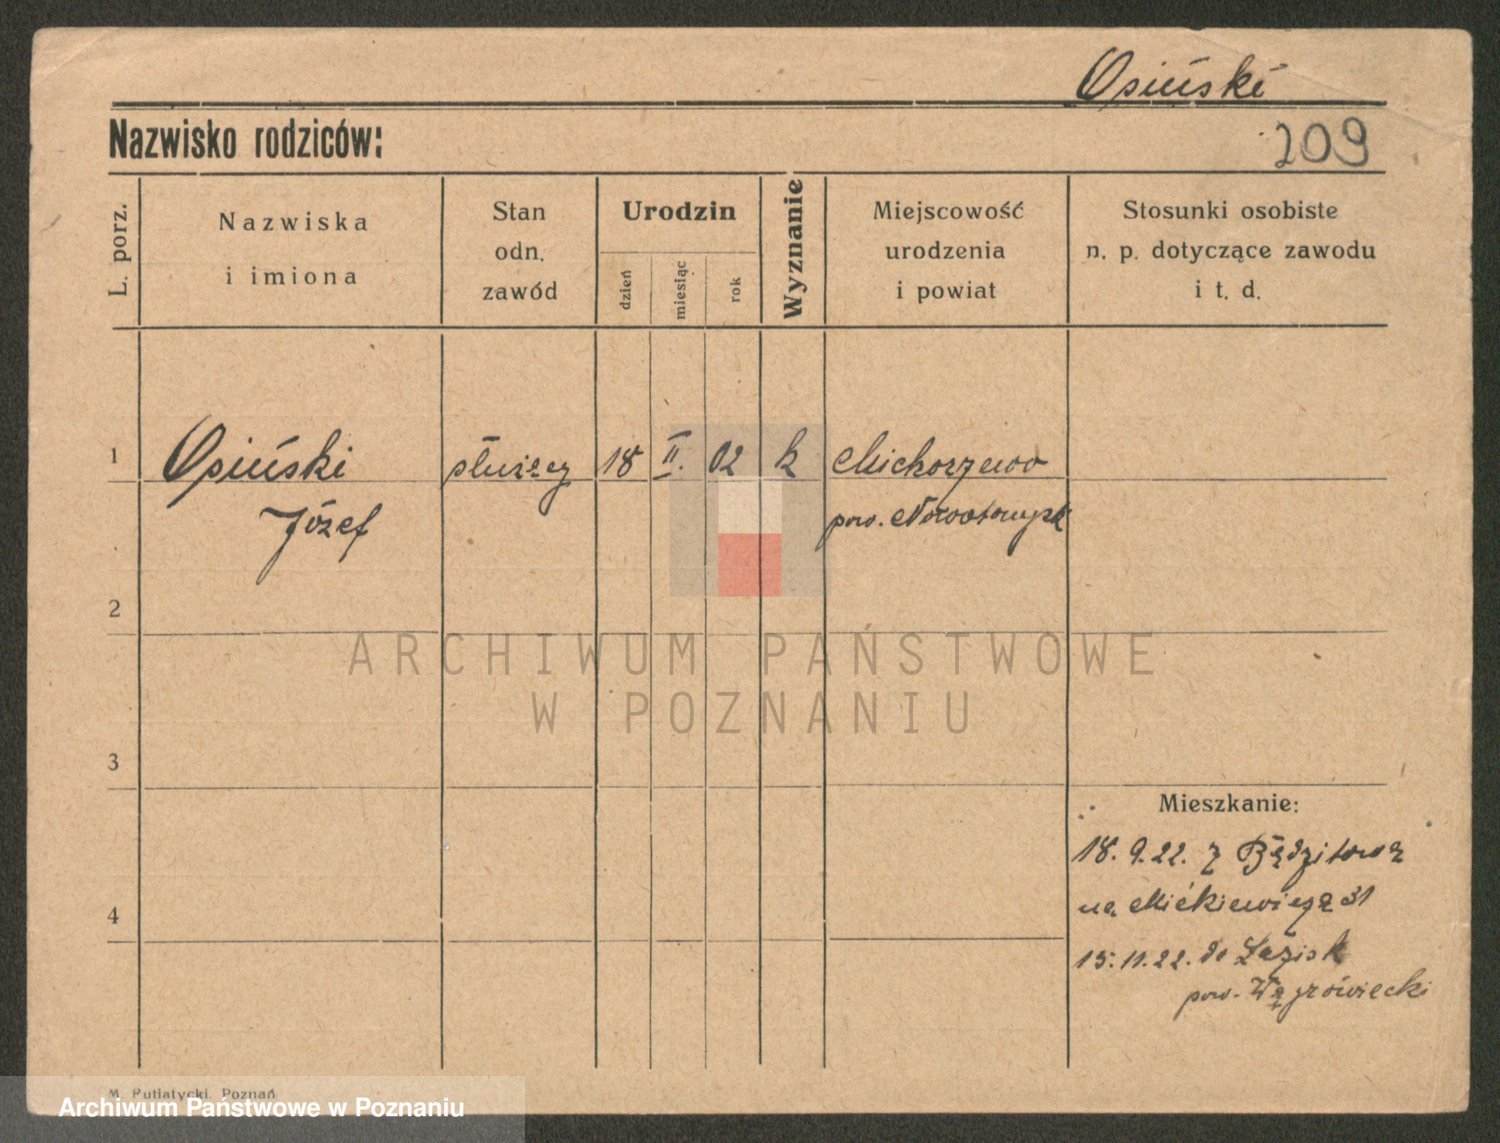 Osiński
Nazwisko rodziców:
209
L. porz.
Nazwiska
i imiona
Stan
odn.
zawód
Urodzin
dzień
miesiąc
rok
Wyznanie
Miejscowość
urodzenia
i powiat
Stosunki osobiste
n. p. dotyczące zawodu
i t. d.
1
Osiński służący 18 II. 02 k Michorzewo
Józef pow. Nowotomysk
2
3
4
ARCHIWUM PAŃSTWOWE
W POZNANIU
Mieszkanie:
18. 9. 22. z
na Mickiewicza 31
15. 11. 22. do Łazisk
pow. Wągrowiecki
M. Putiatycki, Poznań
Archiwum Państwowe w Poznaniu